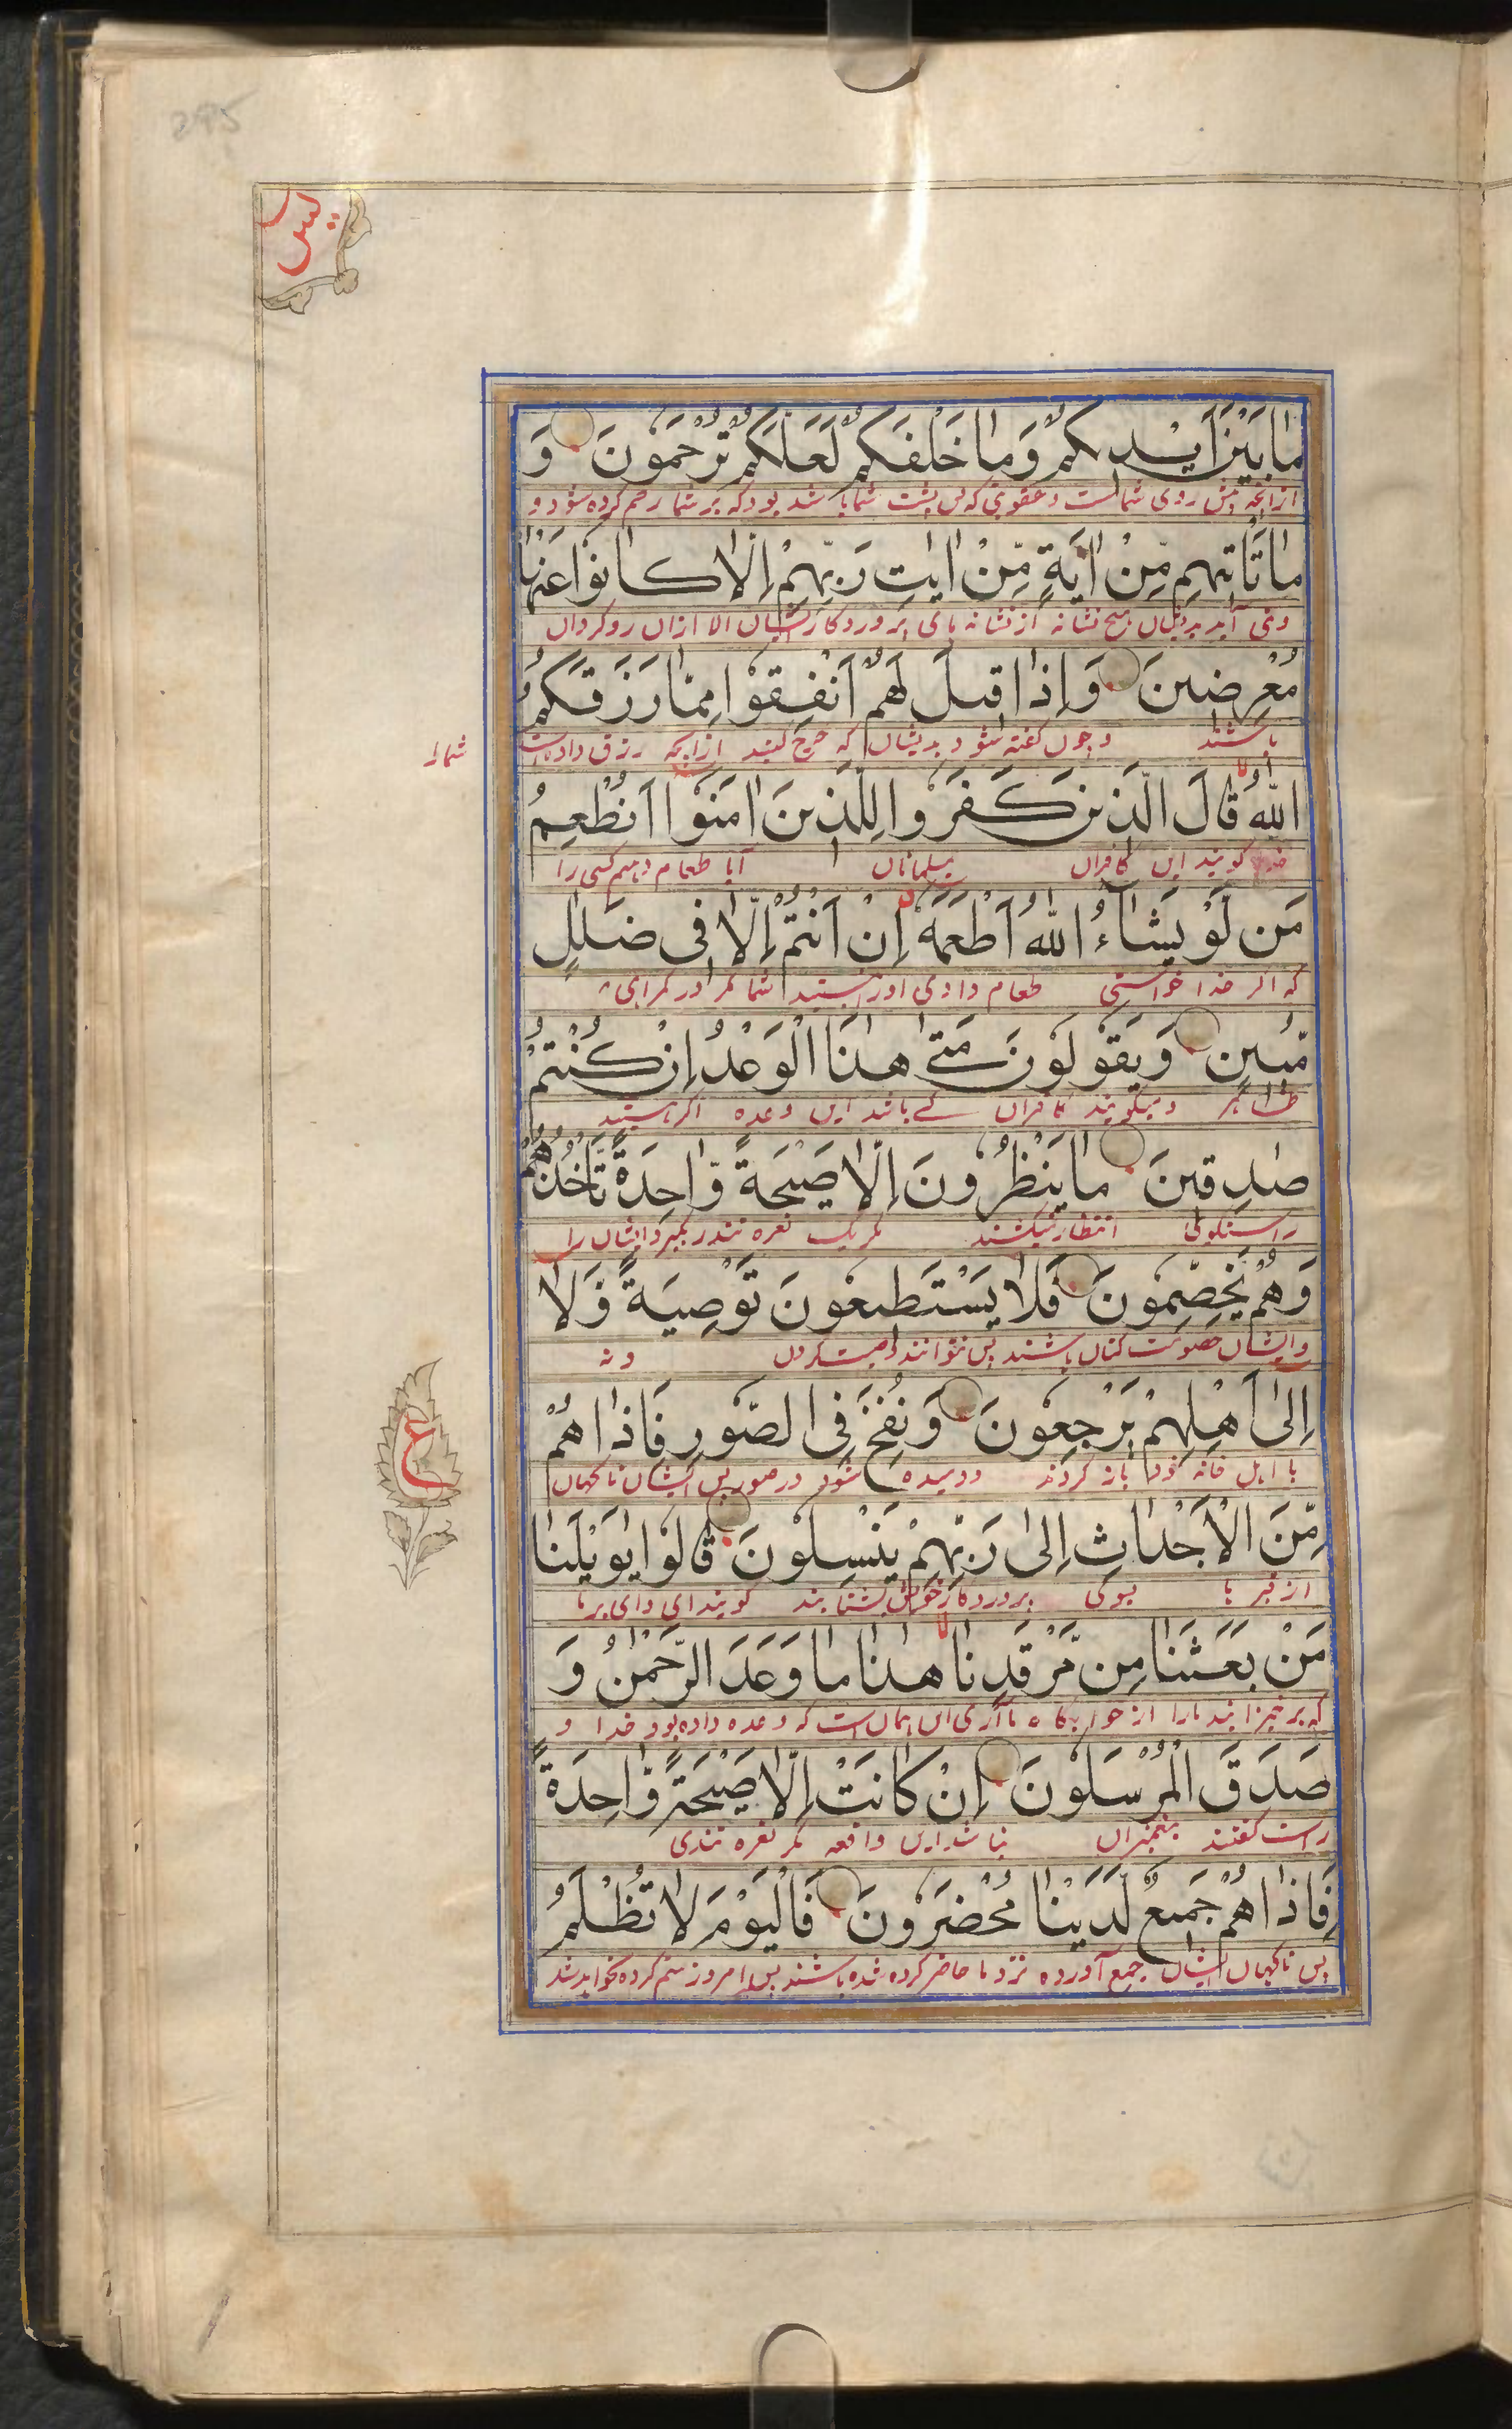 295
يٰس
مَا بَيْنَ اَيْدِيكُمْ وَمَا خَلْفَكُمْ لَعَلَّكُمْ تُرْحَمُوْنَ وَ
ازانچه پیش روی شما است و عقوبتی که پس پشت شما باشد بود که بر شما رحم کرده شود و
مَا تَاْتِيْهِمْ مِّنْ اٰيَةٍ مِّنْ اٰيٰتِ رَبِّهِمْ اِلَّا كَانُوْا عَنْهَا
ونمی آید بدیشان هیچ نشانه از نشانه های پروردگار ایشان الا ازان روگردان
مُعْرِضِيْنَ وَاِذَا قِيْلَ لَهُمْ اَنْفِقُوْا مِمَّا رَزَقَكُمُ
باشند وچون گفته شود بدیشان که خرچ کنید ازانچه رزق داده است
شما را
اللّٰهُ قَالَ الَّذِيْنَ كَفَرُوْا لِلَّذِيْنَ اٰمَنُوْا اَنُطْعِمُ
خدا گویند این کافران بمسلمانان آیا طعام دهیم کسی را
مَنْ لَوْ يَشَآءُ اللّٰهُ اَطْعَمَهٗ اِنْ اَنْتُمْ اِلَّا فِى ضَلٰلٍ
که اگر خدا خواستی طعام دادی اورا نیستید شما مگر در گمراهی
مُّبِيْنٍ وَيَقُوْلُوْنَ مَتٰى هٰذَا الْوَعْدُ اِنْ كُنْتُمْ
ظاهر ومیگویند کافران کے باشد این وعده اگر هستید
صٰدِقِيْنَ مَا يَنْظُرُوْنَ اِلَّا صَيْحَةً وَّاحِدَةً تَاْخُذُهُمْ
راستگوی انتظار نمیکشند مگر یک نعره تند در بگیرد ایشان را
وَهُمْ يَخِصِّمُوْنَ فَلَا يَسْتَطِيْعُوْنَ تَوْصِيَةً وَّلَا
وایشان خصومت کنان باشند پس نتوانند وصیت کردن ونه
اِلٰى اَهْلِهِمْ يَرْجِعُوْنَ وَنُفِخَ فِى الصُّوْرِ فَاِذَا هُمْ
با اهل خانه خود باز گردند ودمیده شود در صور پس ایشان ناگهان
ع
مِّنَ الْاَجْدَاثِ اِلٰى رَبِّهِمْ يَنْسِلُوْنَ قَالُوْا يٰوَيْلَنَا
از قبرها بسوی پروردگار خویش بشتابند گویند ای وای برما
مَنْ بَعَثَنَا مِنْ مَّرْقَدِنَا هٰذَا مَا وَعَدَ الرَّحْمٰنُ وَ
که برخیزانید مارا از خوابگاه ما آری این همان است که وعده داده بود خدا و
صَدَقَ الْمُرْسَلُوْنَ اِنْ كَانَتْ اِلَّا صَيْحَةً وَّاحِدَةً
راست گفتند پیغمبران نباشد این واقعه مگر نعره تندی
فَاِذَا هُمْ جَمِيْعٌ لَّدَيْنَا مُحْضَرُوْنَ فَالْيَوْمَ لَا تُظْلَمُ
پس ناگهان ایشان جمع آورده نزد ما حاضر کرده شده باشند پس امروز ستم کرده نخواهد شد